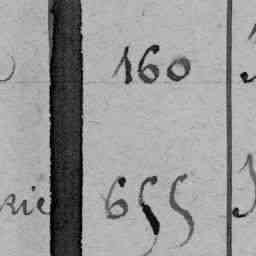 160
rie 655